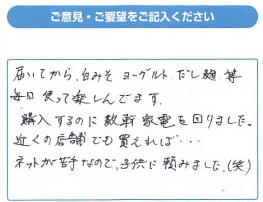 ご意見・ご要望をご記入ください
届いてから、白みそ ヨーグルト だし麹 等
毎日 使って楽しんでます。
購入するのに数軒 家電を回りました。
近くの店舗でも買えれば・・・
ネットが苦手なので、子供に頼みました。(笑)